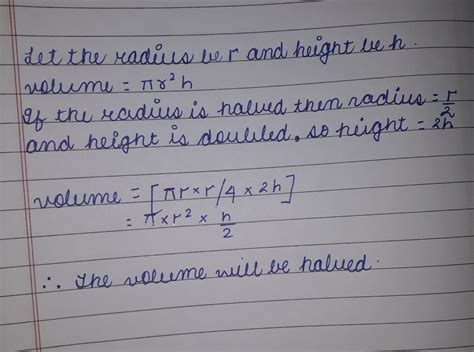 Let the radius be r and height be h.
volume = πr²h
If the radius is halved then radius = r/2
and height is doubled. so height = 2h
volume = [πr×r/4 × 2h]
= π×r² × h/2
∴ The volume will be halved.